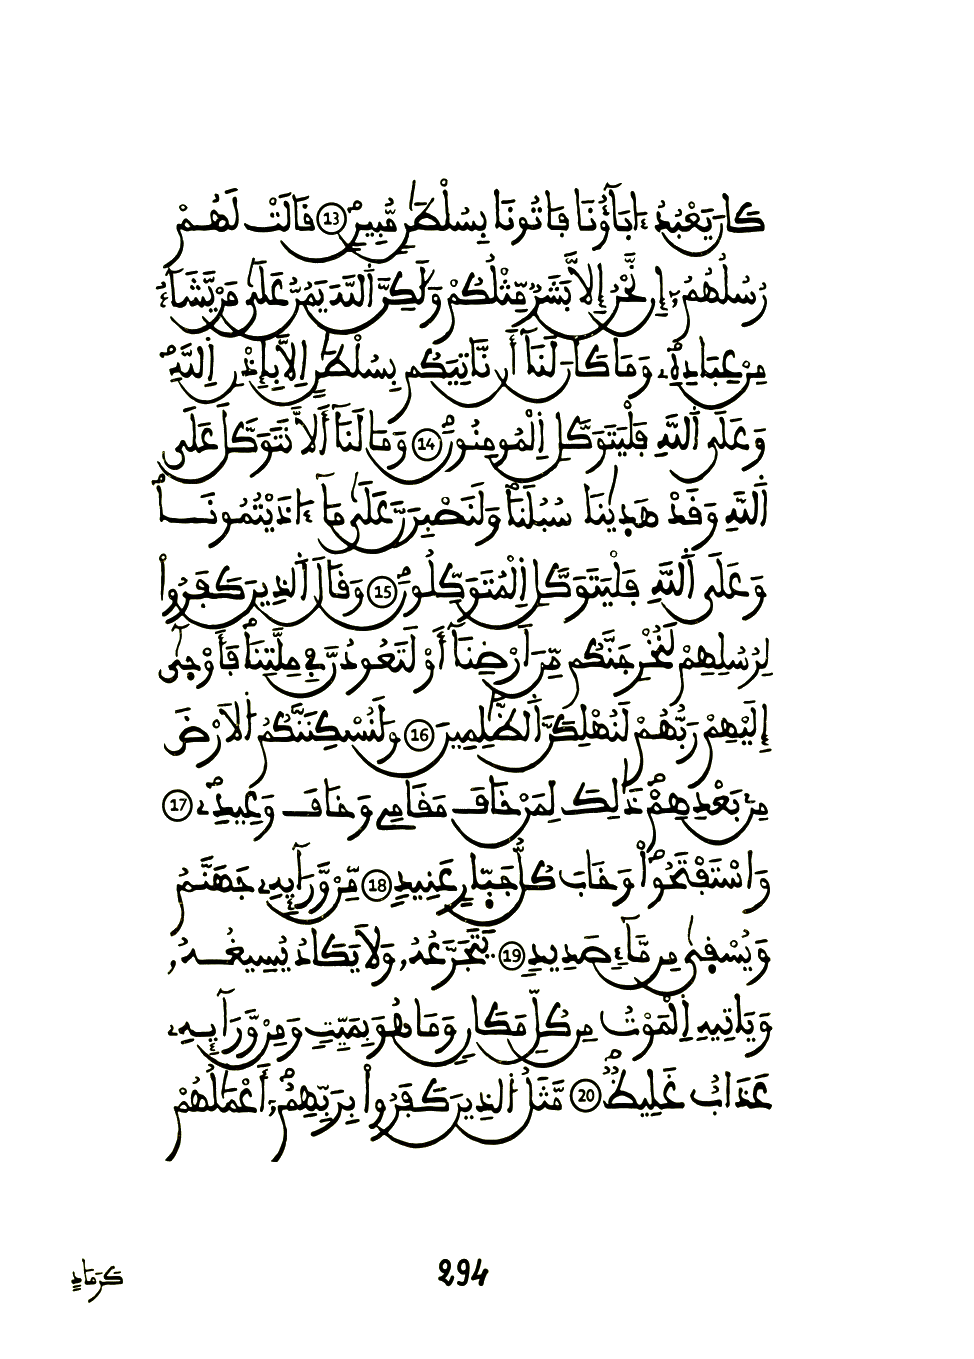 كَانَ يَعْبُدُ ءَابَآؤُنَا فَاتُونَا بِسُلْطَٰنٍ مُّبِينٍ 13 قَالَتْ لَهُمْ
رُسُلُهُمُۥٓ إِن نَّحْنُ إِلَّا بَشَرٌ مِّثْلُكُمْ وَلَٰكِنَّ اَللَّهَ يَمُنُّ عَلَىٰ مَنْ يَّشَآءُ
مِنْ عِبَادِهِۦ وَمَا كَانَ لَنَآ أَن نَّاتِيَكُم بِسُلْطَٰنٍ اِلَّا بِإِذْنِ اِللَّهِ
وَعَلَى اَللَّهِ فَلْيَتَوَكَّلِ اِلْمُومِنُونَ 14 وَمَا لَنَآ أَلَّا نَتَوَكَّلَ عَلَى
اَللَّهِ وَقَدْ هَدٜىٰنَا سُبُلَنَا وَلَنَصْبِرَنَّ عَلَىٰ مَآ ءَاذَيْتُمُونَا
وَعَلَى اَللَّهِ فَلْيَتَوَكَّلِ اِلْمُتَوَكِّلُونَ 15 وَقَالَ اَلذِينَ كَفَرُواْ
لِرُسُلِهِمْ لَنُخْرِجَنَّكُم مِّنَ اَرْضِنَآ أَوْ لَتَعُودُنَّ فِے مِلَّتِنَا فَأَوْحَىٰٓ
إِلَيْهِمْ رَبُّهُمْ لَنُهْلِكَنَّ اَلظَّٰلِمِينَ 16 وَلَنُسْكِنَنَّكُمُ اُلَارْضَ
مِنۢ بَعْدِهِمْ ذَٰلِكَ لِمَنْ خَافَ مَقَامِے وَخَافَ وَعِيدِۦ 17
وَاسْتَفْتَحُواْ وَخَابَ كُلُّ جَبّٜارٍ عَنِيدٍ 18 مِّنْ وَّرَآئِهِۦ جَهَنَّمُ
وَيُسْقٜىٰ مِن مَّآءٍ صَدِيدٍ 19 يَتَجَرَّعُهُۥ وَلَا يَكَادُ يُسِيغُهُۥ
وَيَاتِيهِ اِلْمَوْتُ مِن كُلِّ مَكَانٍ وَمَا هُوَ بِمَيِّتٍ وَمِنْ وَّرَآئِهِۦ
عَذَابٌ غَلِيظٌ 20 مَّثَلُ اُلذِينَ كَفَرُواْ بِرَبِّهِمُۥٓ أَعْمَٰلُهُمْ
294